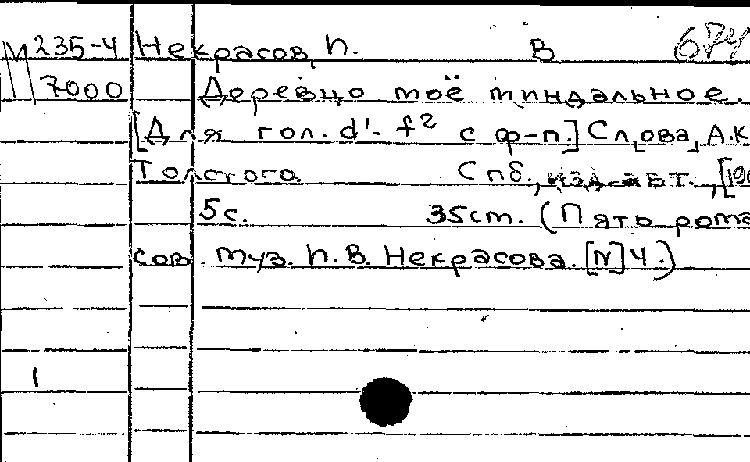 М 235-4 Некрасов, П. В 674
7000 Деревцо моё миндальное.
[Для гол. d¹- f² с ф-п.] Слова А.К
Толстого. Спб., изд. авт., [190
5с. 35cm. (Пять рома
сов. муз. П. В. Некрасова. [N] 4.)
1